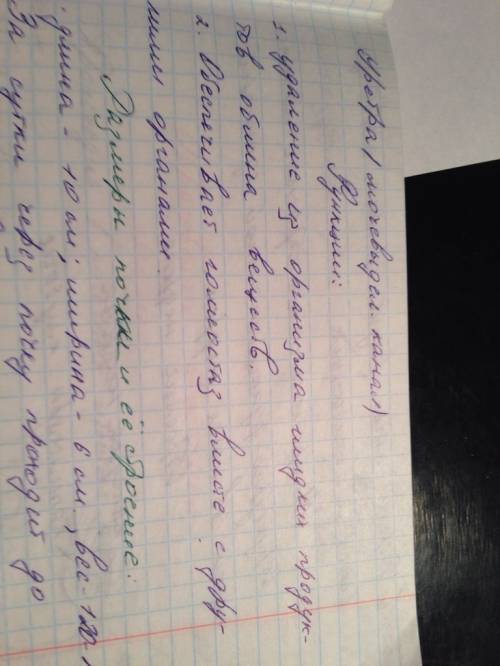 Уретра (мочевыдел. канал)
Функции:
1. удаление из организма жидких продук-
тов обмена веществ.
2. Обеспечивает гомеостаз вместе с дру-
гими органами.
Размеры почки и её строение:
длина - 10 см; ширина - 6 см; вес - 120-
За сутки через почку проходит до